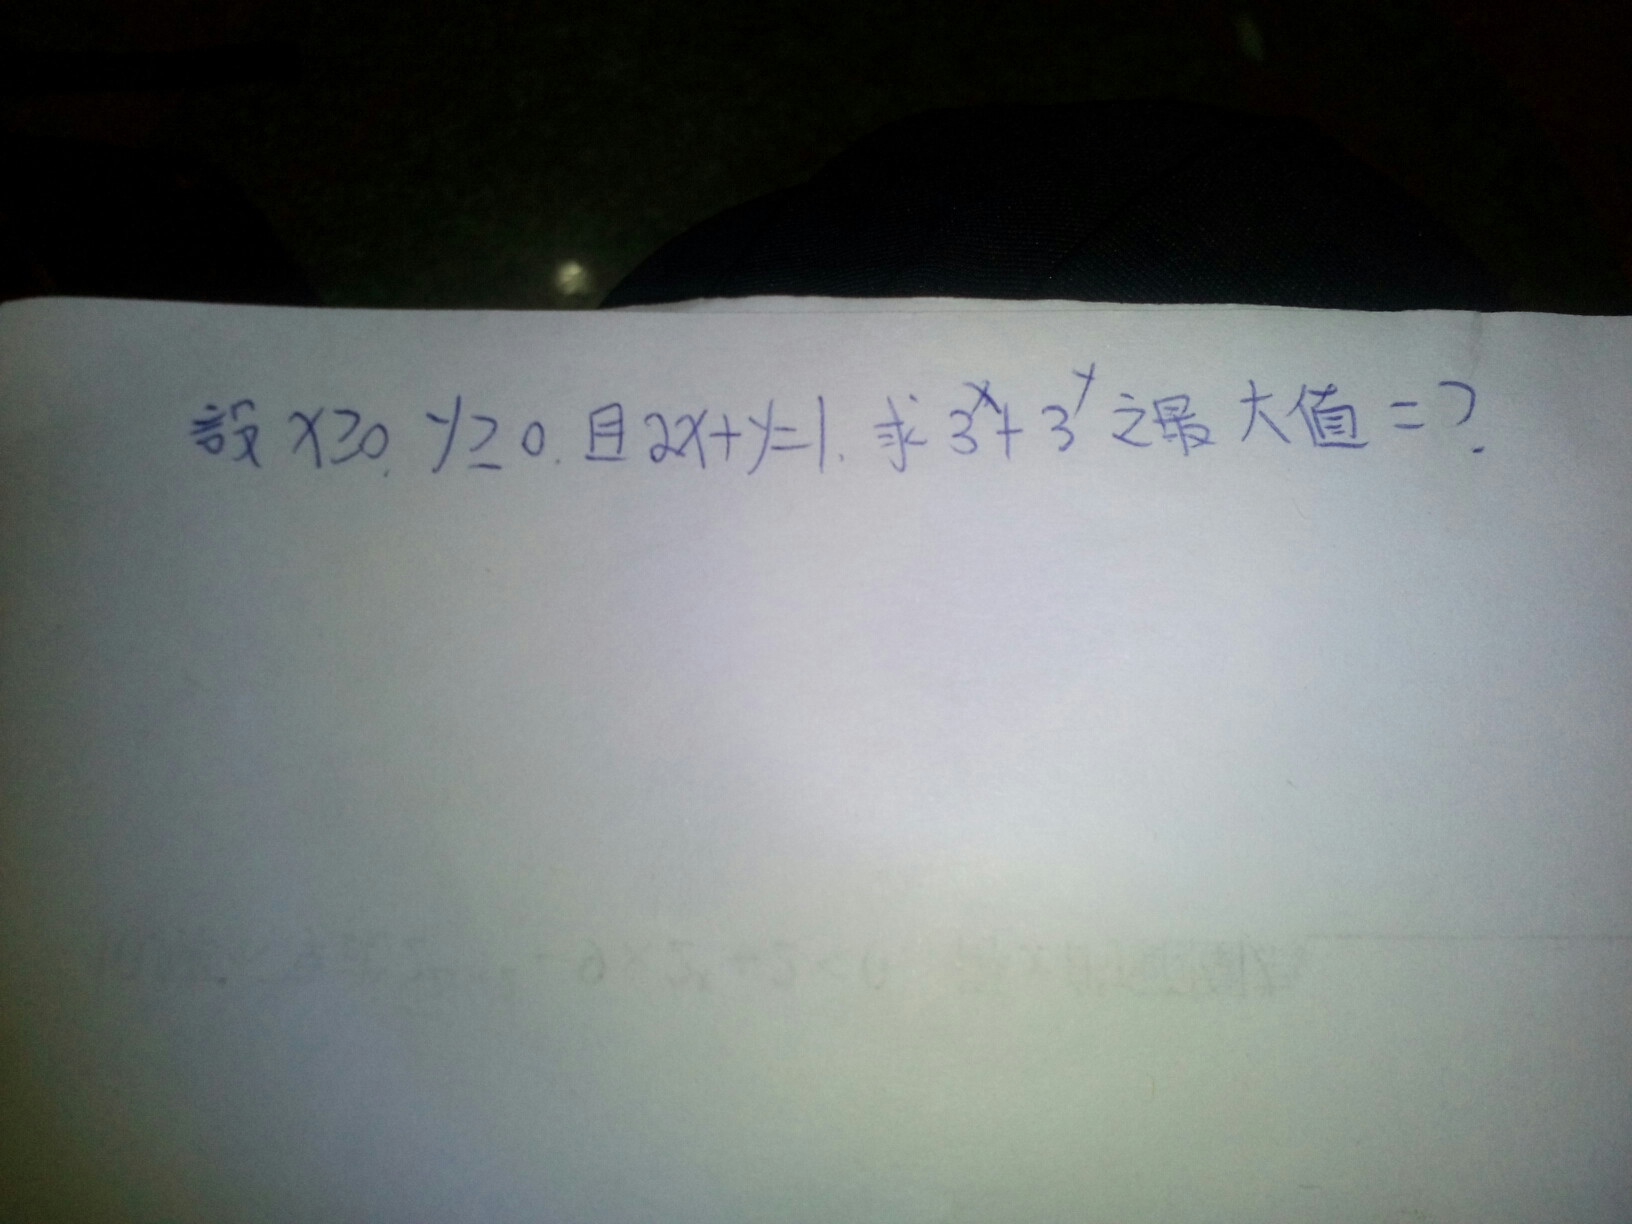 設 x≥0, y≥0. 且 2x+y=1. 求 3^x+3^y 之最大值=?